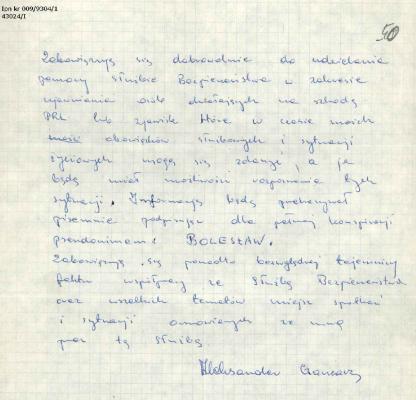 Ipn kr 009/9304/1
43024/I
50
Zobowiązuję się dobrowolnie do udzielania
pomocy Służbie Bezpieczeństwa w zakresie
ujawniania osób działających na szkodę
PRL lub zjawisk które w czasie moich
obowiązków służbowych i sytuacji
życiowych mogą się zdarzyć, a ja
będę miał możliwość rozpoznania tych
sytuacji. Informacje będę przekazywał
pisemnie podpisując dla pełnej konspiracji
pseudonimem: BOLESŁAW.
Zobowiązuję się ponadto bezwzględnej tajemnicy
faktu współpracy ze Służbą Bezpieczeństwa
oraz wszelkich tematów miejsc spotkań
i sytuacji omawianych ze mną
przez tą służbę
Aleksander